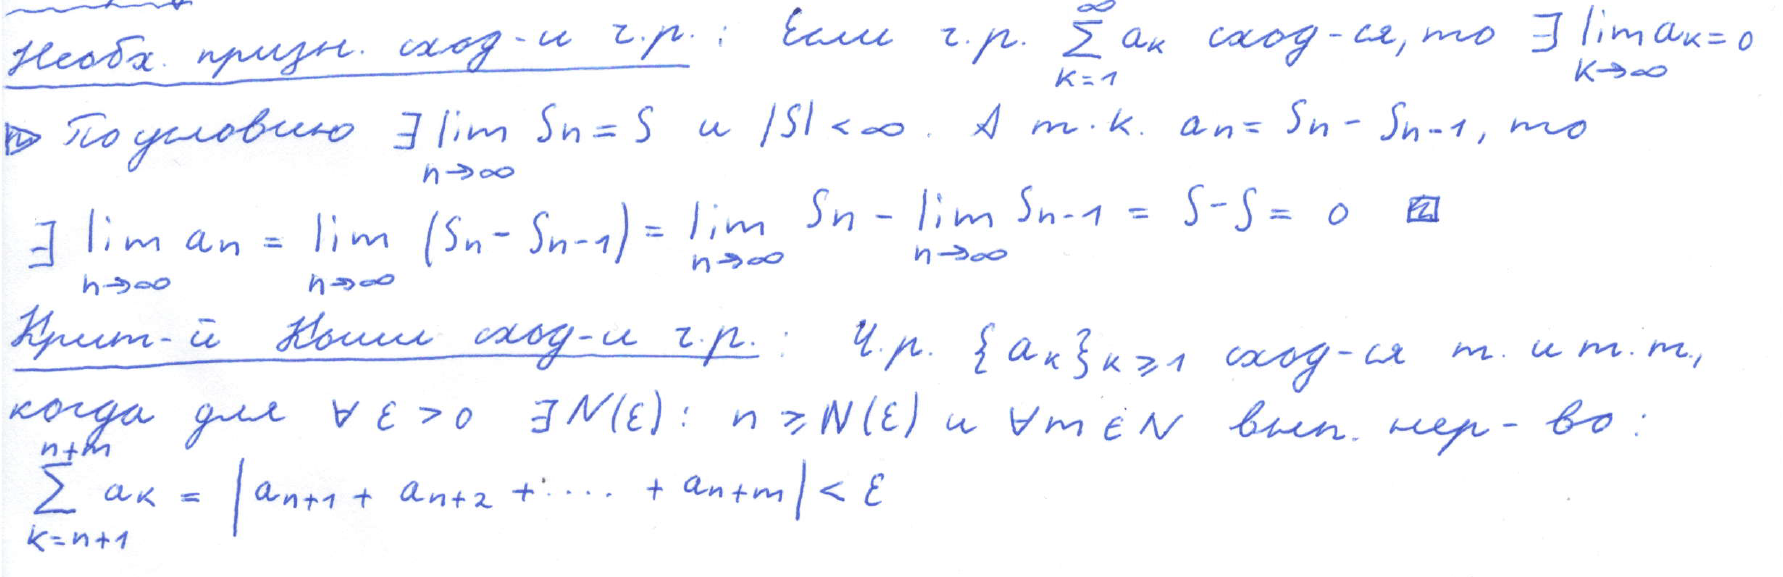 Необх. призн. сход-и ч.р.: Если ч.р. ∑_{k=1}^{∞} a_k сход-ся, то ∃ lim_{k→∞} a_k = 0
▷ По условию ∃ lim_{n→∞} S_n = S и |S| < ∞. А т.к. a_n = S_n - S_{n-1}, то
∃ lim_{n→∞} a_n = lim_{n→∞} (S_n - S_{n-1}) = lim_{n→∞} S_n - lim_{n→∞} S_{n-1} = S - S = 0
Крит-й Коши сход-и ч.р.: Ч.р. {a_k}_{k⩾1} сход-ся т. и т.т.,
когда для ∀ ε > 0 ∃ N(ε): n ⩾ N(ε) и ∀m ∈ N вып. нер-во:
∑_{k=n+1}^{n+m} a_k = |a_{n+1} + a_{n+2} + .... + a_{n+m}| < ε